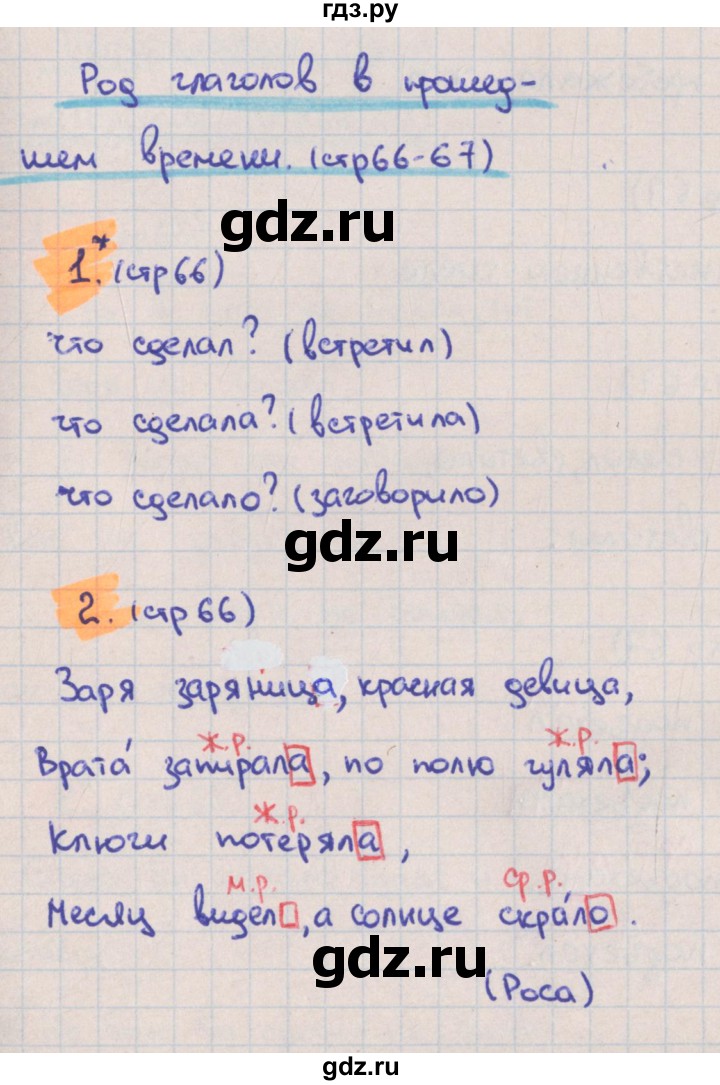 гдз.ру
Род глаголов в прошед-
шем времени. (стр 66-67)
gdz.ru
1.* (стр 66)
что сделал? (встретил)
что сделала? (встретила)
что сделало? (заговорило)
gdz.ru
2. (стр 66)
Заря заряница, красная девица,
ж.р. ж.р.
Врата́ запирала, по полю гуляла;
ж.р.
Ключи потеряла,
м.р. ср.р.
Месяц видел, а солнце скра́ло.
(Роса)
gdz.ru
gdz.ru